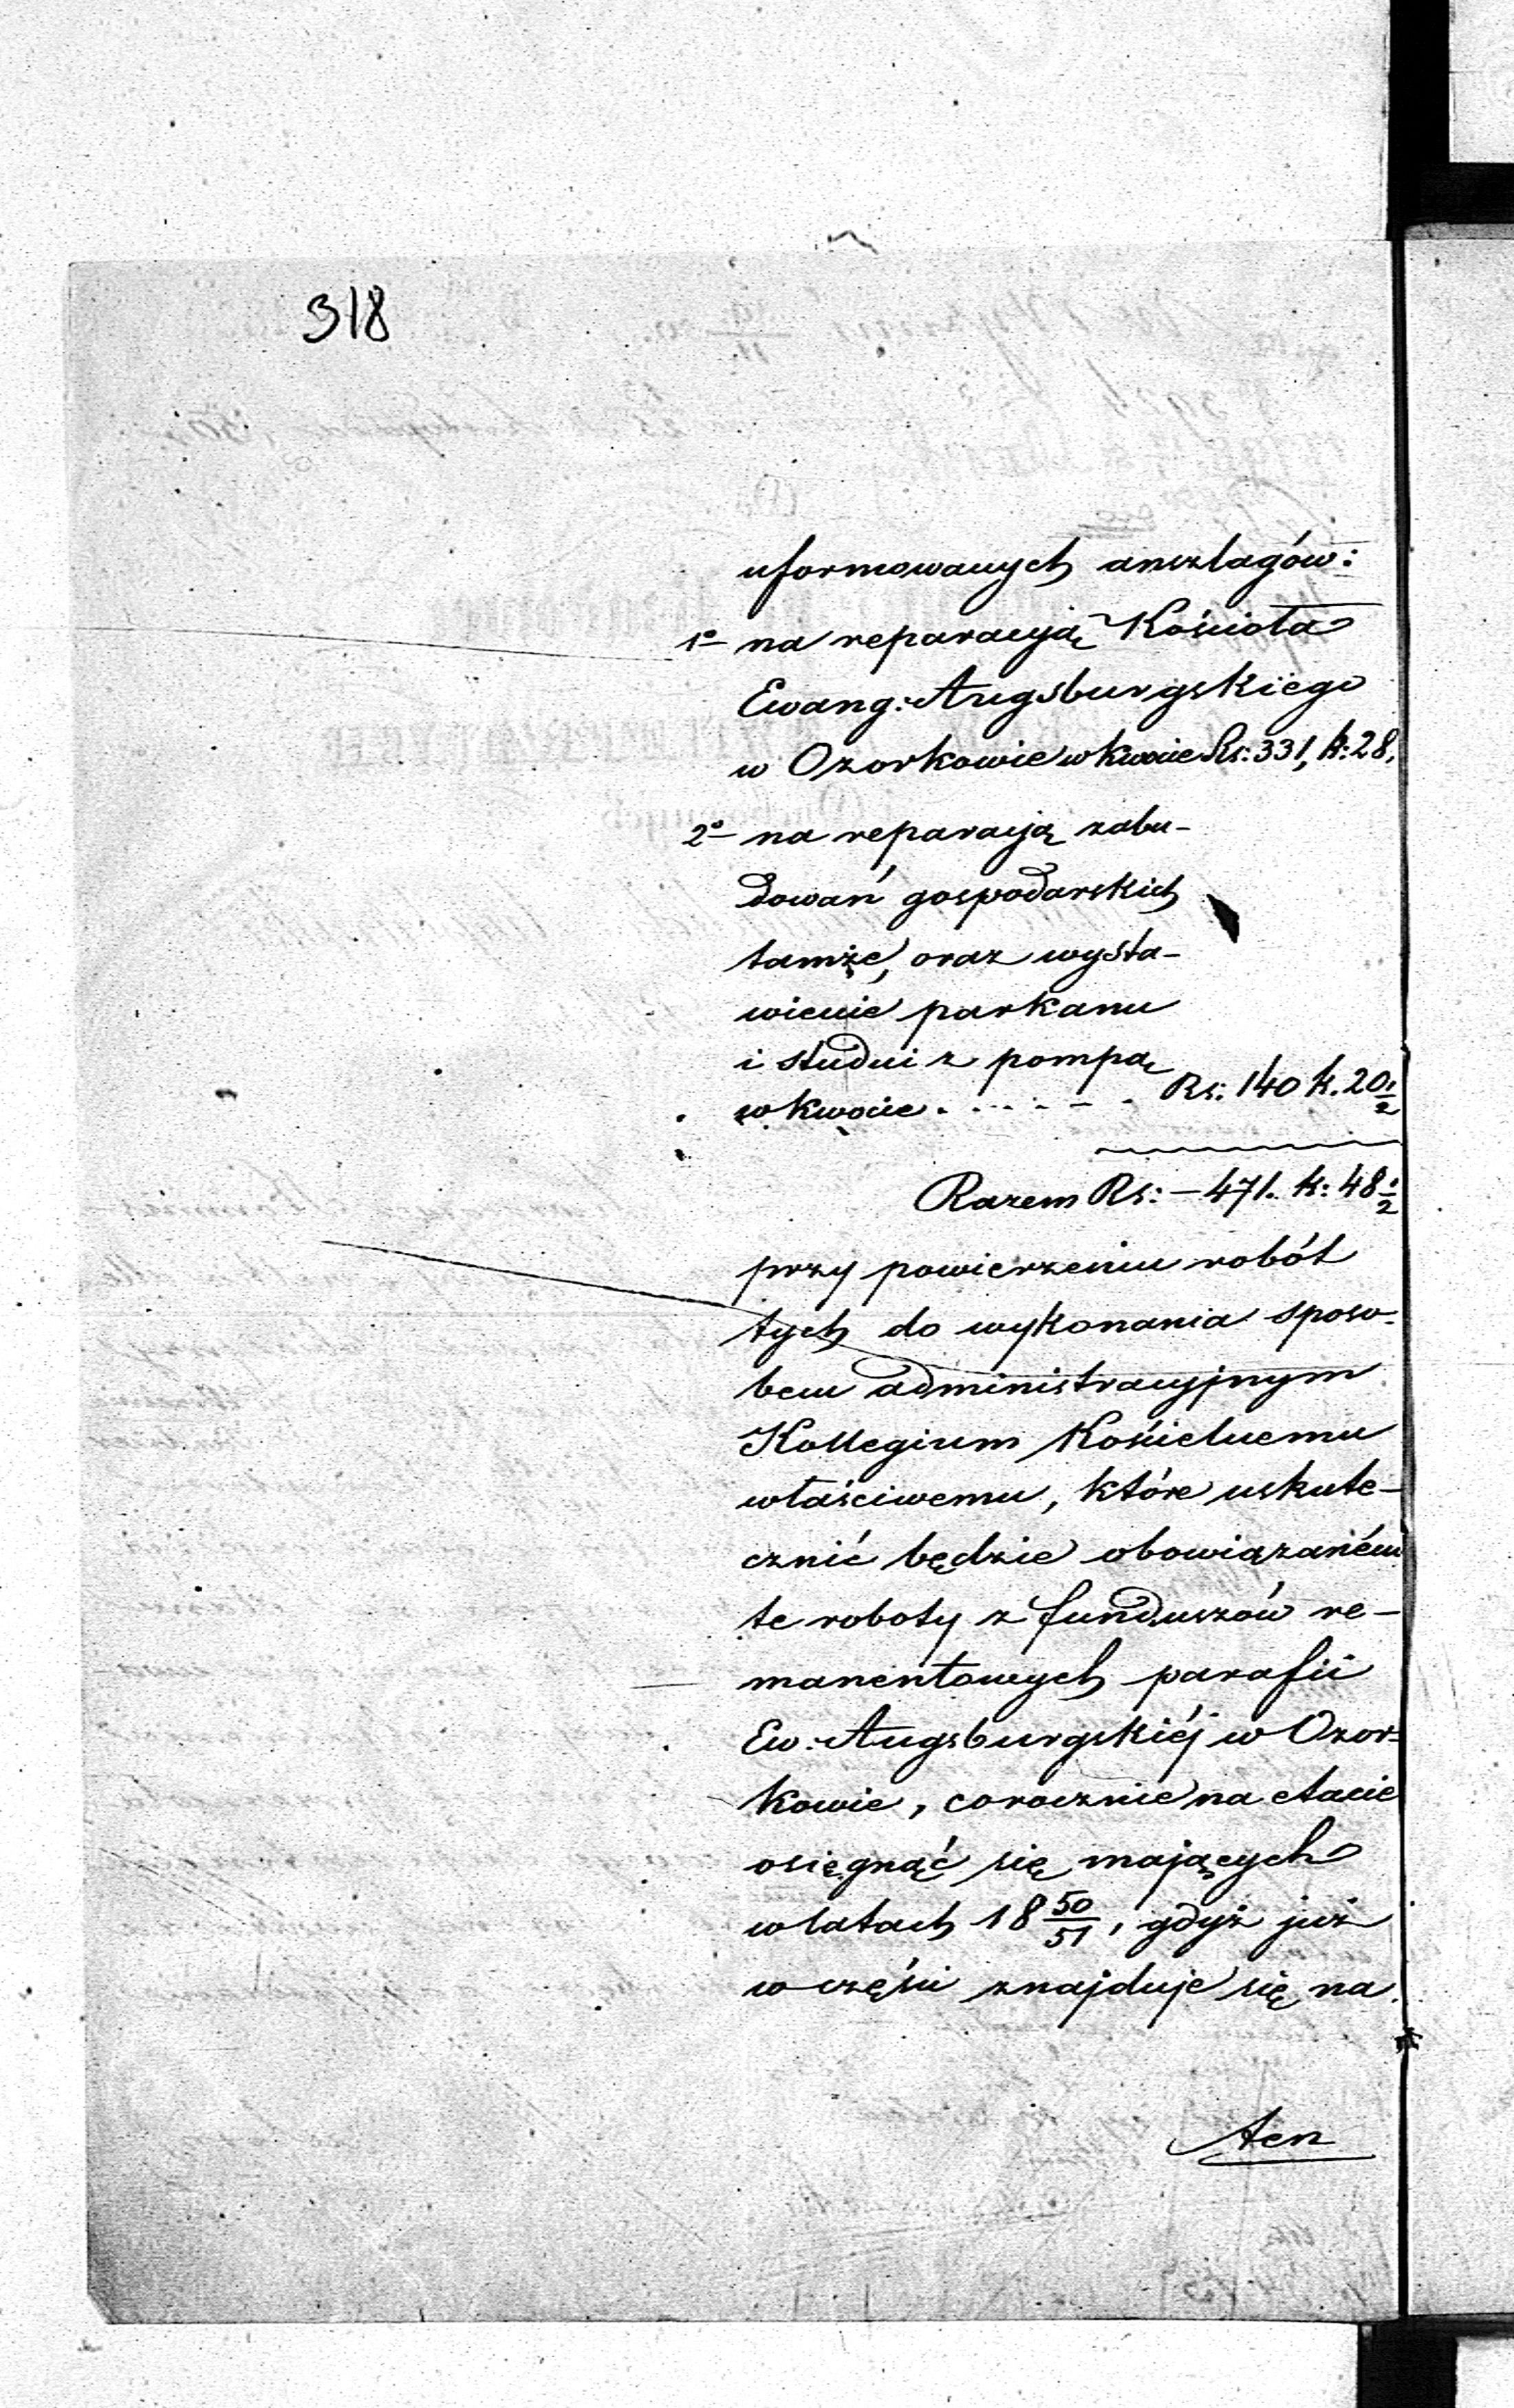 318
uformowanych anszlagów:
1º na reparacyją Kościoła
Ewang: Augsburgskiego
w Ozorkowie w kwocie Rs: 331, k: 28,
2º na reparacją zabu-
dowań gospodarskich
tamże, oraz wysta-
wienie parkanu
i studni z pompą
w kwocie . . . . . . . Rs: 140 k. 20 1/2
Razem Rs: - 471. k: 48 1/2
przy powierzeniu robót
tych do wykonania sposo-
bem administracyjnym
Kollegium Kościelnemu
właściwemu, które uskute-
cznić będzie obowiązaném
te roboty z funduszów re-
manentowych parafii
Ew: Augsburgskiéj w Ozor-
kowie, corocznie na etacie
osięgnąć się mających
w latach 18 50/51, gdyż już
w części znajduje się na
ten